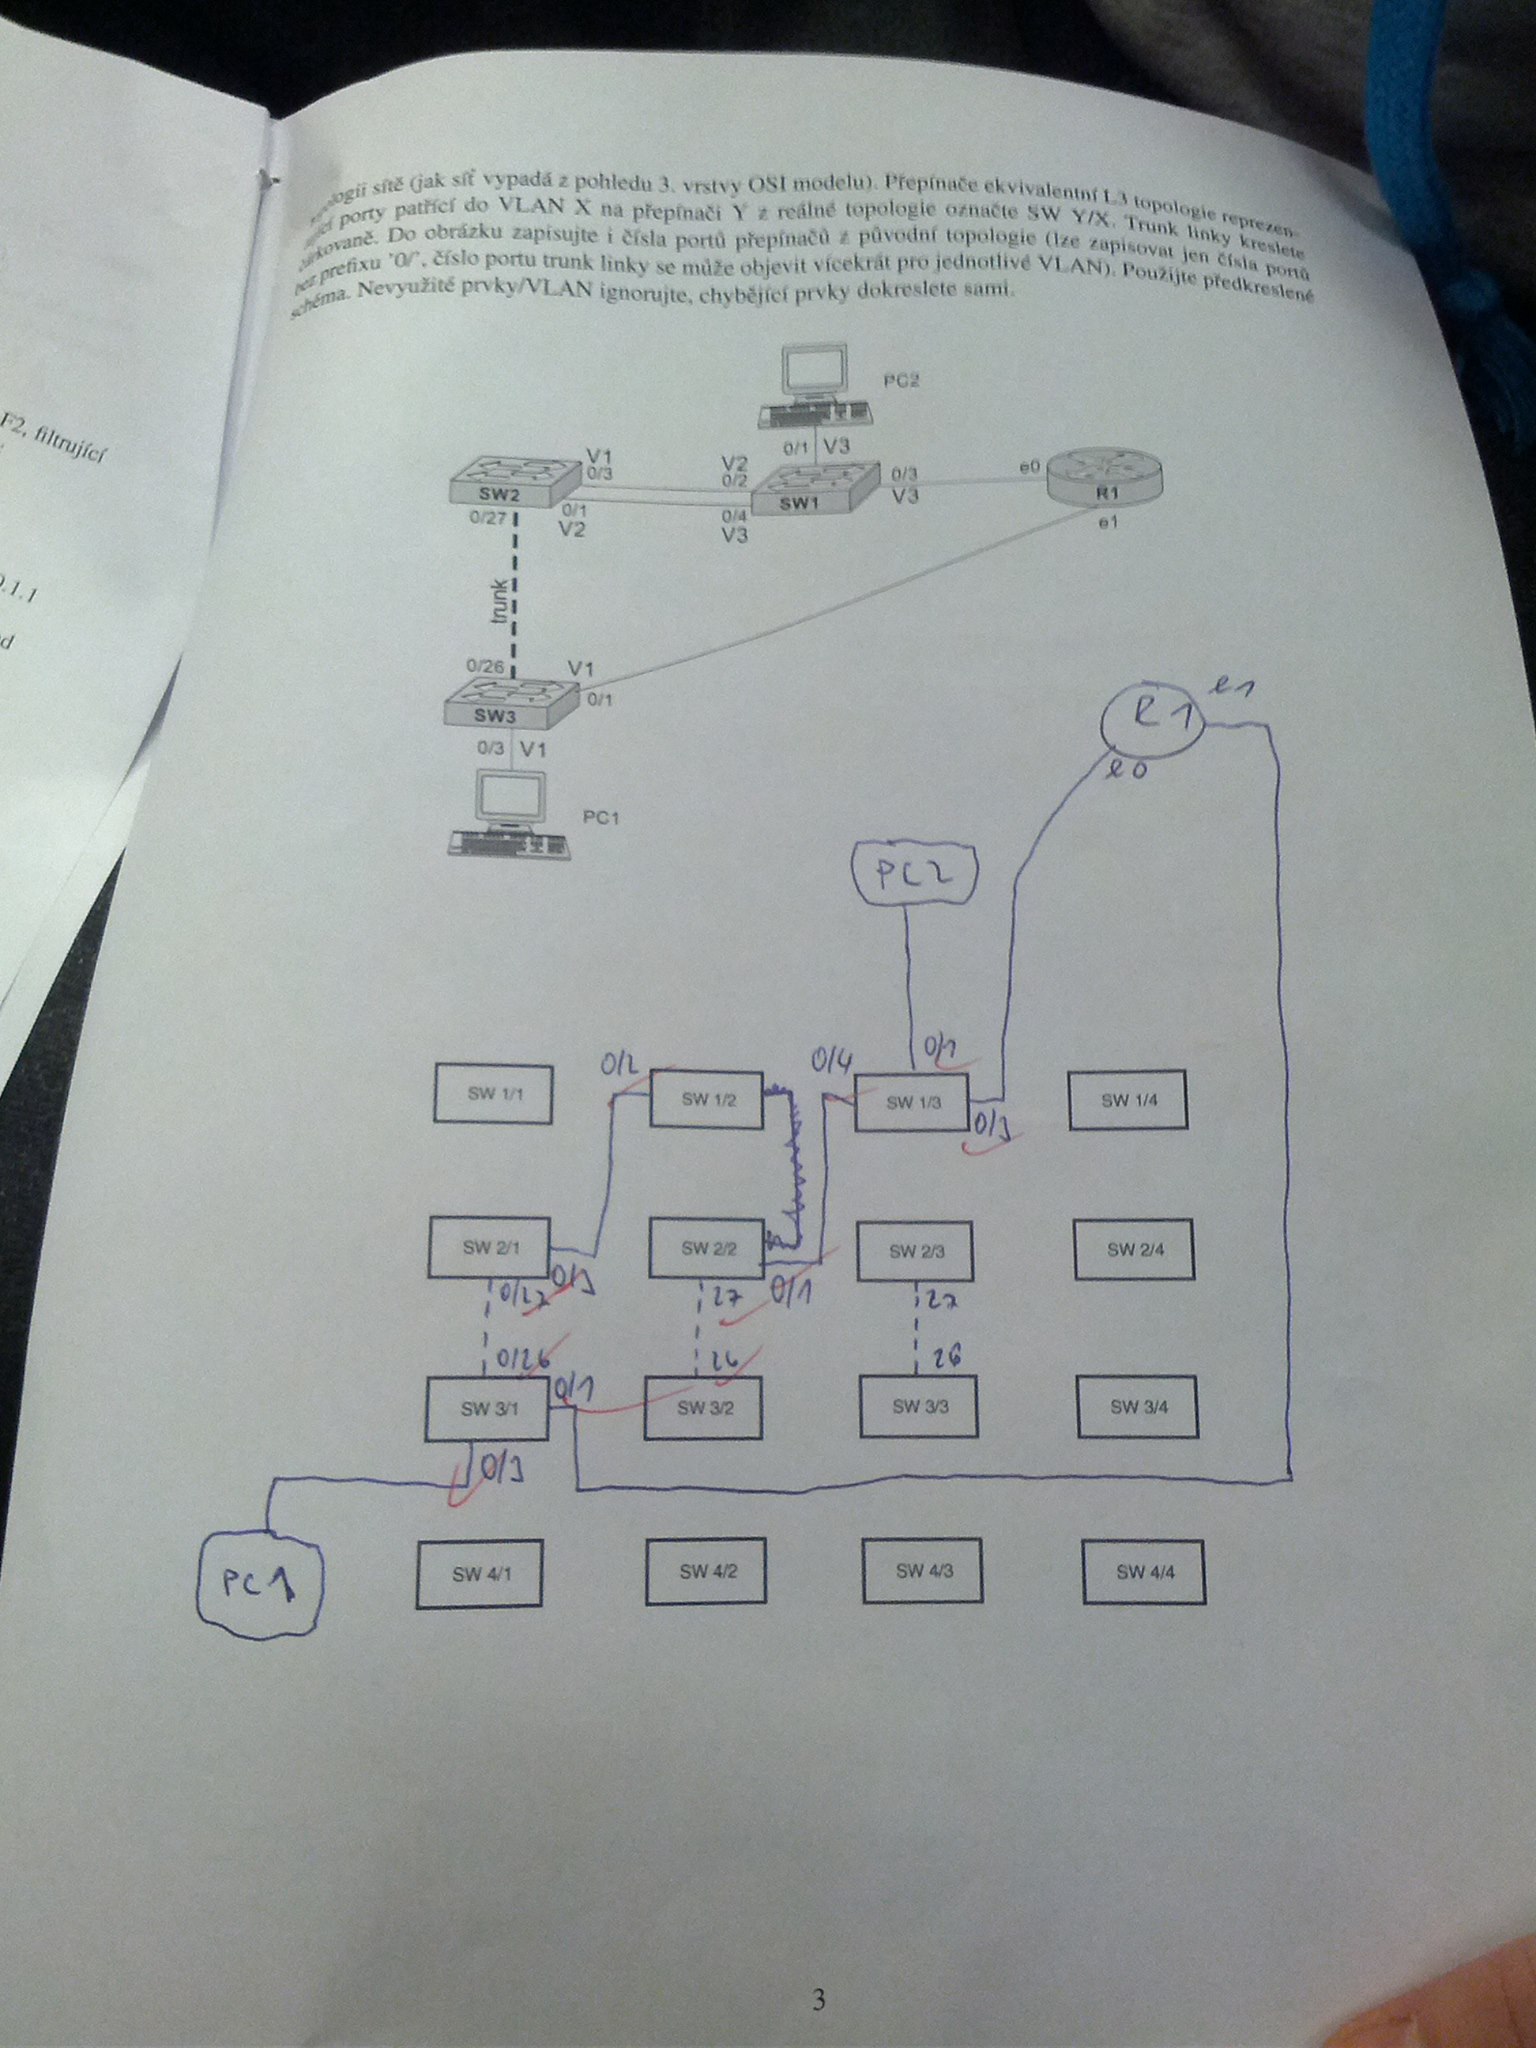 F2, filtrující
0.1.1
topologii sítě (jak síť vypadá z pohledu 3. vrstvy OSI modelu). Přepínače ekvivalentní L3 topologie reprezen-
porty patřící do VLAN X na přepínači Y z reálné topologie označte SW Y/X. Trunk linky kreslete
čárkovaně. Do obrázku zapisujte i čísla portů přepínačů z původní topologie (lze zapisovat jen čísla portů
bez prefixu '0/', číslo portu trunk linky se může objevit vícekrát pro jednotlivé VLAN). Použijte předkreslené
schéma. Nevyužité prvky/VLAN ignorujte, chybějící prvky dokreslete sami.
PC2
0/1 V3
V1
0/3
V2
0/2
SW2
SW1
0/3
V3
e0
R1
e1
0/27
0/1
V2
0/4
V3
trunk
0/26
V1
0/1
SW3
0/3 V1
PC1
R1 e1
e0
PC2
0/2 0/4 0/1
SW 1/1 SW 1/2 SW 1/3 SW 1/4
0/3
SW 2/1 SW 2/2 SW 2/3 SW 2/4
0/27 0/3 27 0/1 27
0/26 26 26
0/1
SW 3/1 SW 3/2 SW 3/3 SW 3/4
0/3
PC1
SW 4/1 SW 4/2 SW 4/3 SW 4/4
3